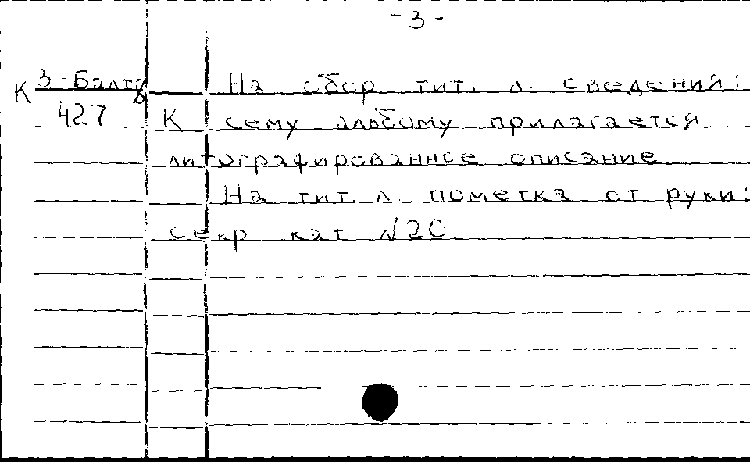 - 3 -
К 3-Балтв На обор тит. л. сведений:
427 К сему альбому прилагается
литографированное описание
На тит л. пометка от руки:
секр кат №20